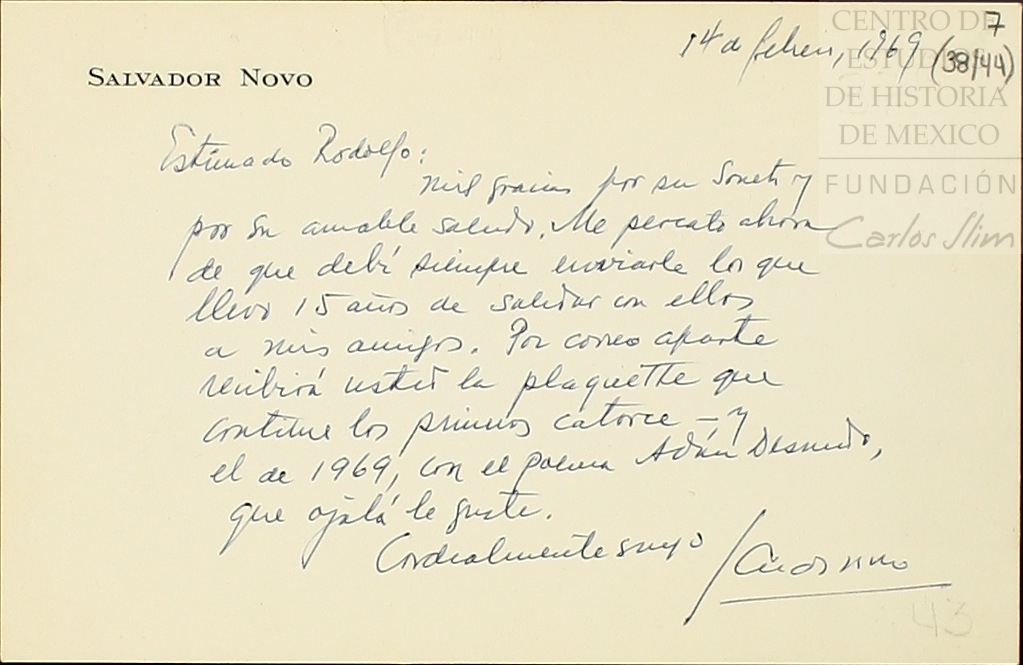 7
14 de febrero, 1969 (38/44)
SALVADOR NOVO
Estimado Rodolfo:
mil gracias por su soneto y
por su amable saludo. Me percato ahora
de que debí siempre enviarle los que
llevo 15 años de saludar con ellos
a mis amigos. Por correo aparte
recibirá usted la plaquette que
contiene los primeros catorce — y
el de 1969, con el poema Adán Desnudo,
que ojalá le guste.
Cordialmente suyo
43
CENTRO DE
ESTUDIOS
DE HISTORIA
DE MEXICO
FUNDACIÓN
Carlos Slim